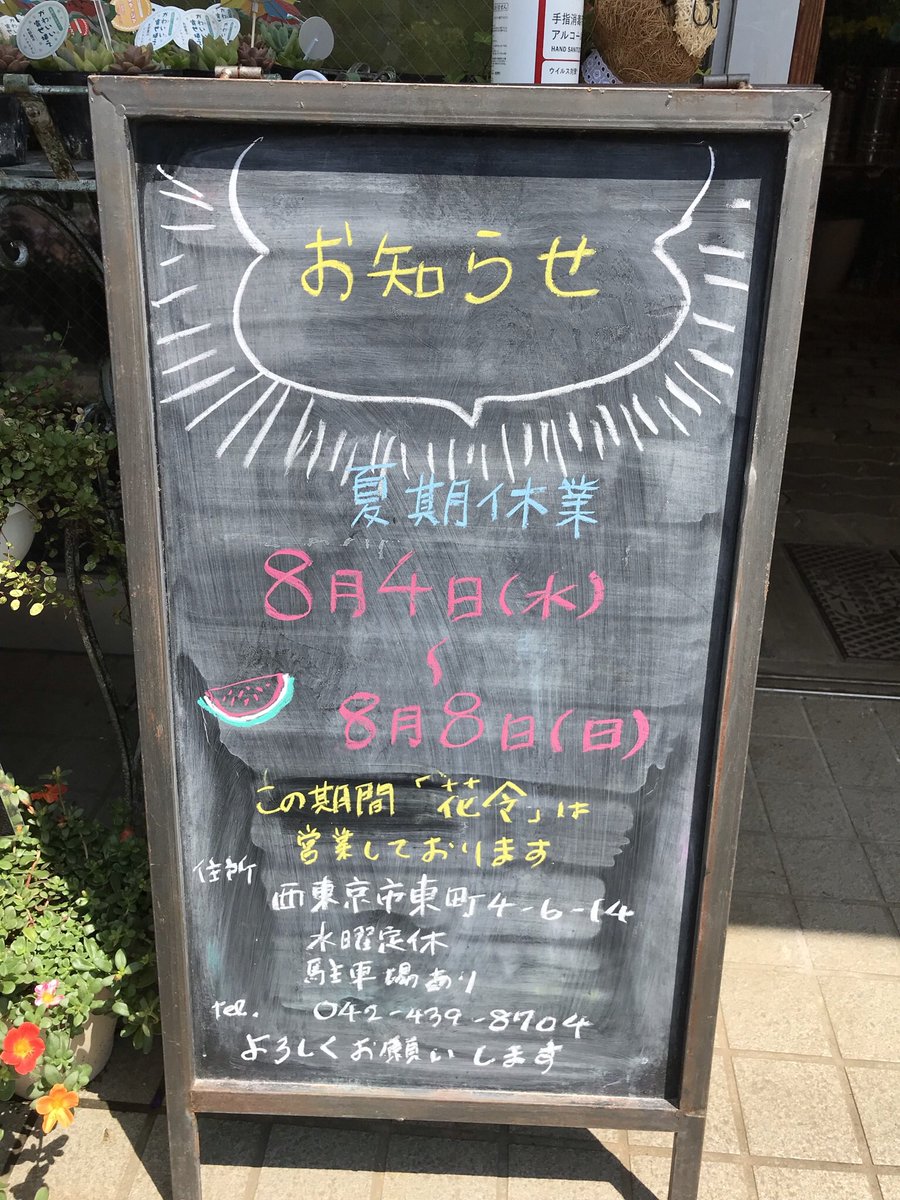 手指消毒
アルコー
HAND SANIT
ウイルス対策
お知らせ
夏期休業
8月4日(水)
〜
8月8日(日)
この期間「花令」は
営業しております
住所
西東京市東町4-6-14
水曜定休
駐車場あり
tel. 042-439-8704
よろしくお願いします